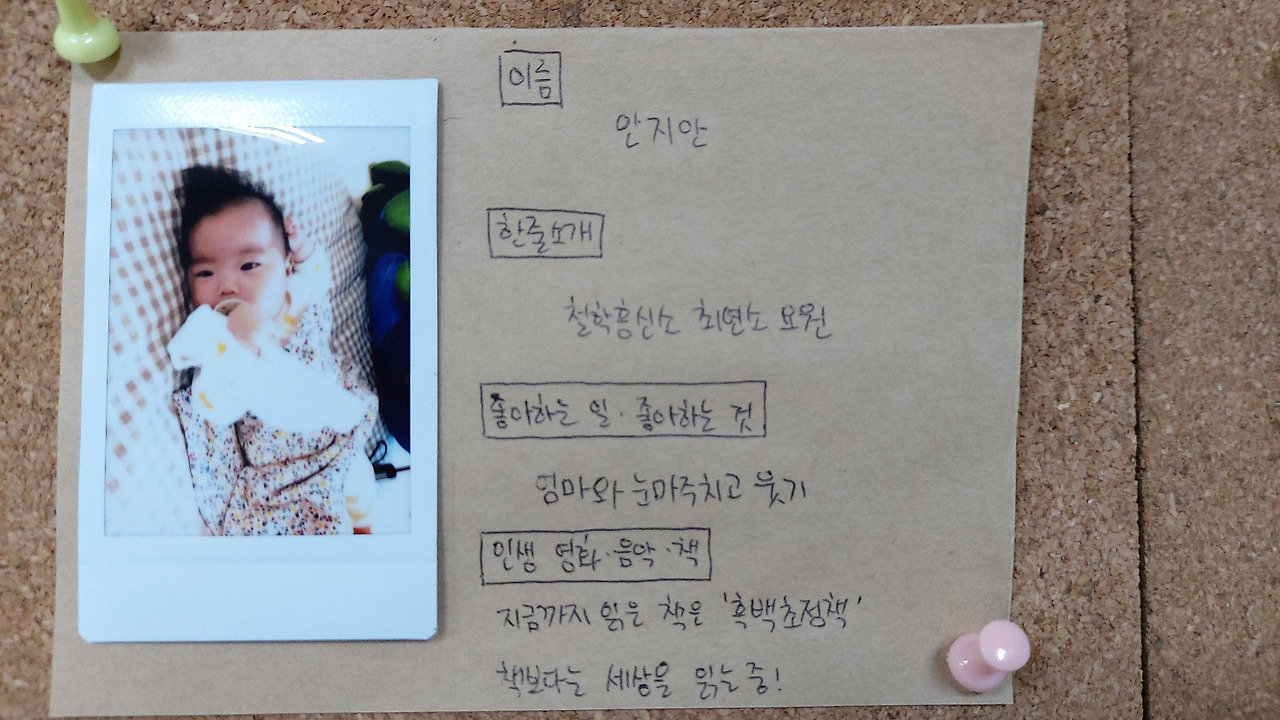 이름
안지안
한줄소개
철학흥신소 최연소 요원
좋아하는 일·좋아하는 것
엄마와 눈마주치고 웃기
인생 영화·음악·책
지금까지 읽은 책은 '흑백초점책'
책보다는 세상을 읽는 중!